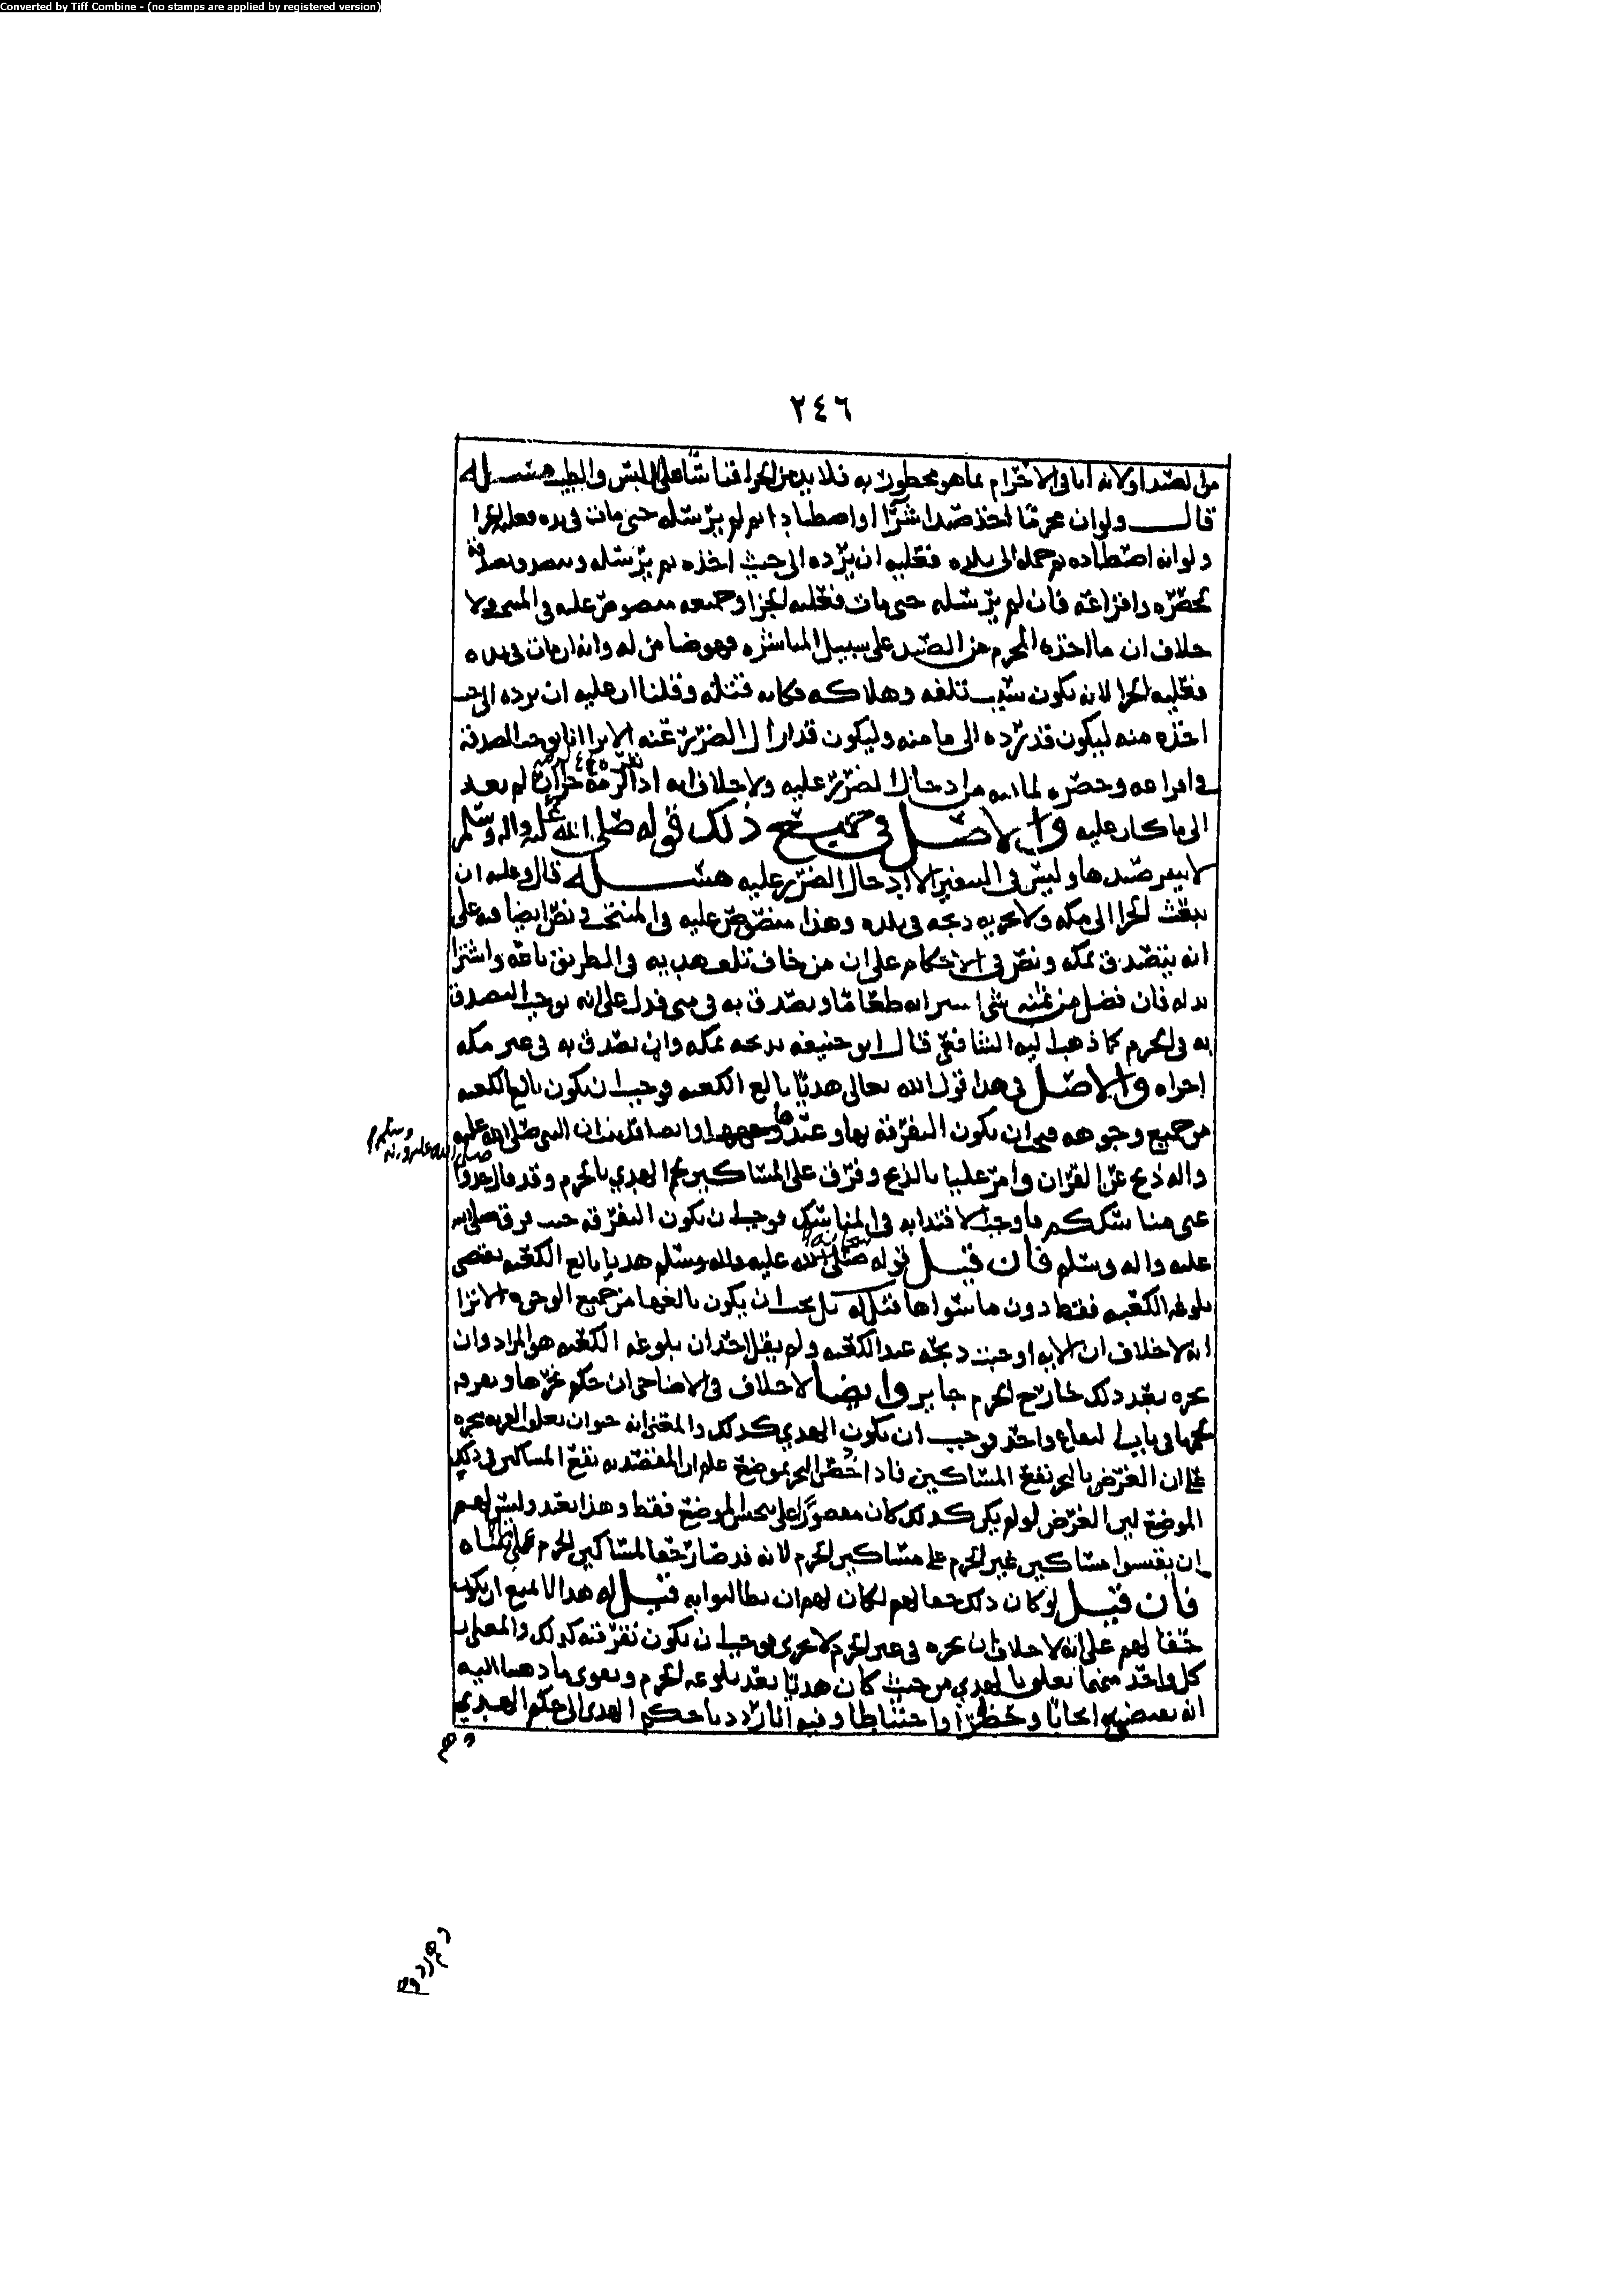 Converted by Tiff Combine - (no stamps are applied by registered version)
٢٤٦
من الصيد اولانه اتا في الاحرام بما هو محظور به فلا بد من الجزا قياسا على اللبس والطيب مسئلة
قال ولو ان محرما اخذ صيدا شرا او اصطيادا ثم لم يرسله حتى مات في يده فعليه الجزا
ولو انه اصطاده ثم حمله الى بلده فعليه ان يرده الى حيث اخذه ثم يرسله ويتصدق بصدقة
لحصره وافزاعه فان لم يرسله حتى مات فعليه الجزا وجميعه منصوص عليه في المنتخب ولا
خلاف ان ما اخذه المحرم من الصيد على سبيل المباشرة فهو ضامن له وانه ان مات في يده
فعليه الجزا لانه يكون سبب تلفه وهلاكه فكانه قتله وقلنا ان عليه ان يرده الى حيث
اخذه منه ليكون قد رده الى مامنه وليكون قد ازال الضرر عنه الا ترا انا نوجب الصدقة
في افزاعه وحصره لما فيه من ادخال الضرر عليه ولا خلاف انه اذا لم يعد
الى ما كان عليه والاصل في جميع ذلك قوله صلى الله عليه واله وسلم
لا ينفر صيدها وليس في التنفير الا ادخال الضرر عليه مسئلة قال وعليه ان
يبعث الجزا الى مكة ولا يجزيه ذبحه في بلده وهذا منصوص عليه في المنتخب ونص ايضا فيه على
انه يتصدق بمكة ونص في الاحكام على ان من خاف تلف هديه في الطريق باعه واشترا
بدله فان فضل من ثمنه شي اشترا به طعاما وتصدق به في منى فدل على انه يوجب التصدق
به في الحرم كما ذهب اليه الشافعي قال ابو حنيفة يذبحه بمكة وان تصدق به في غير مكة
اجزاه والاصل في هذا قول الله تعالى هديا بالغ الكعبة فوجب ان يكون بالغ الكعبة
من جميع وجوهه فيجب ان يكون التفرقة بها وعندها وايضا قد ثبت ان النبي صلى الله عليه
واله ذبح عن القران وامر عليا بالذبح وفرق على المساكين لحم الهدي بالحرم وقد قال خذوا
عني مناسككم فاوجب الاقتدا به في المناسك فوجب ان يكون التفرقة حيث فرق صلى الله
عليه واله وسلم فان قيل قوله صلى الله عليه واله وسلم هديا بالغ الكعبة يقتضي
بلوغه الكعبة فقط دون ما سواها قيل له بل يجب ان يكون بالغها من جميع الوجوه الا ترا
انه لا خلاف ان الاية اوجبت ذبحه عند الكعبة ولم يقل احد ان بلوغه الكعبة هو المراد وان
نحره بعد ذلك خارج الحرم جايز وايضا لا خلاف في الاضاحي ان حكم نحرها وتفرقة
لحمها في باب واحد فوجب ان يكون الهدي كذلك والمعنى انه حيوان تعلق القربة بنحره
على ان الغرض بالنحر نفع المساكين فاذا اختص النحر بموضع علم ان المقصد به نفع المساكين في ذلك
الموضع لان الغرض لو لم يكن كذلك كان مقصورا على تنجيس الموضع فقط وهذا بعيد وليس لهم
ان يقيسوا مساكين غير الحرم على مساكين الحرم لانه قد صار حقا لمساكين الحرم على ما بيناه
فان قيل لو كان ذلك حقا لهم لكان لهم ان يطالبوا به قيل له هذا لا يمنع ان يكون
حقا لهم على انه لا خلاف ان نحره في غير الحرم لا يجزي فوجب ان يكون تفرقته كذلك والمعنى ان
كل واحد منهما تعلق بالهدي من حيث كان هديا بعد بلوغه الحرم ويقوي ما ذهبنا اليه
انه يقتضي ايجابا وحظرا واحتياطا وفيه انا نرد باحكم الهدى الى حكم الهدي